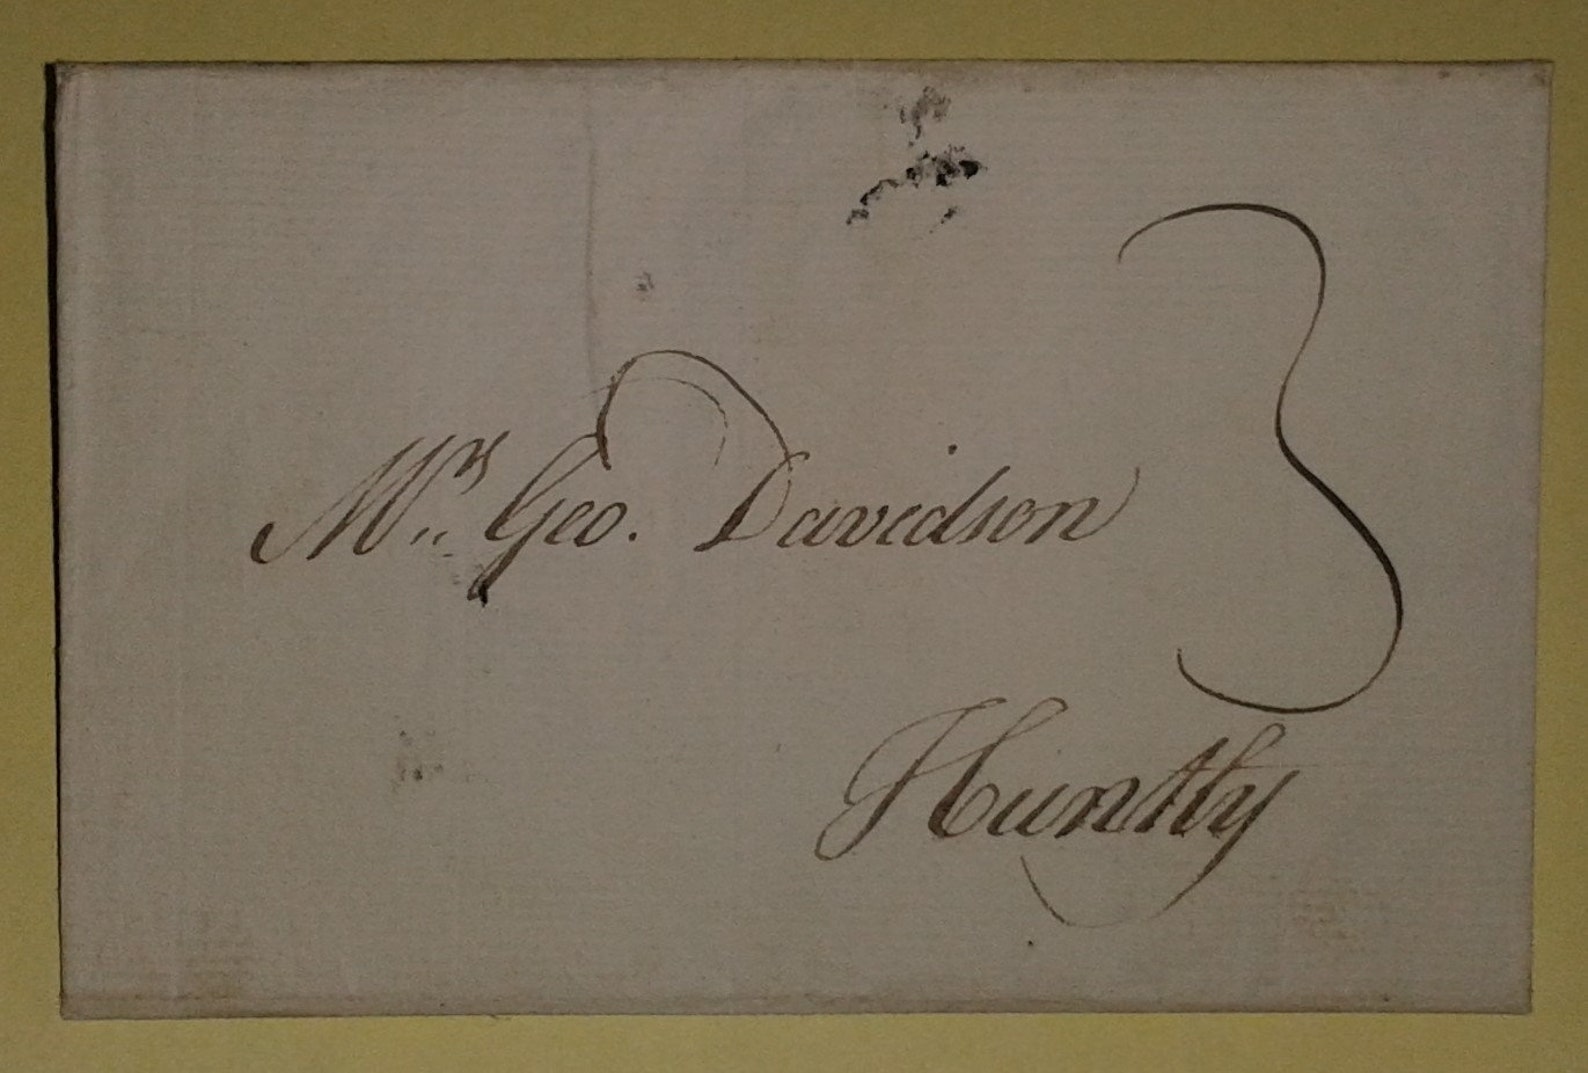 Mr. Geo. Davidson
3
Huntly